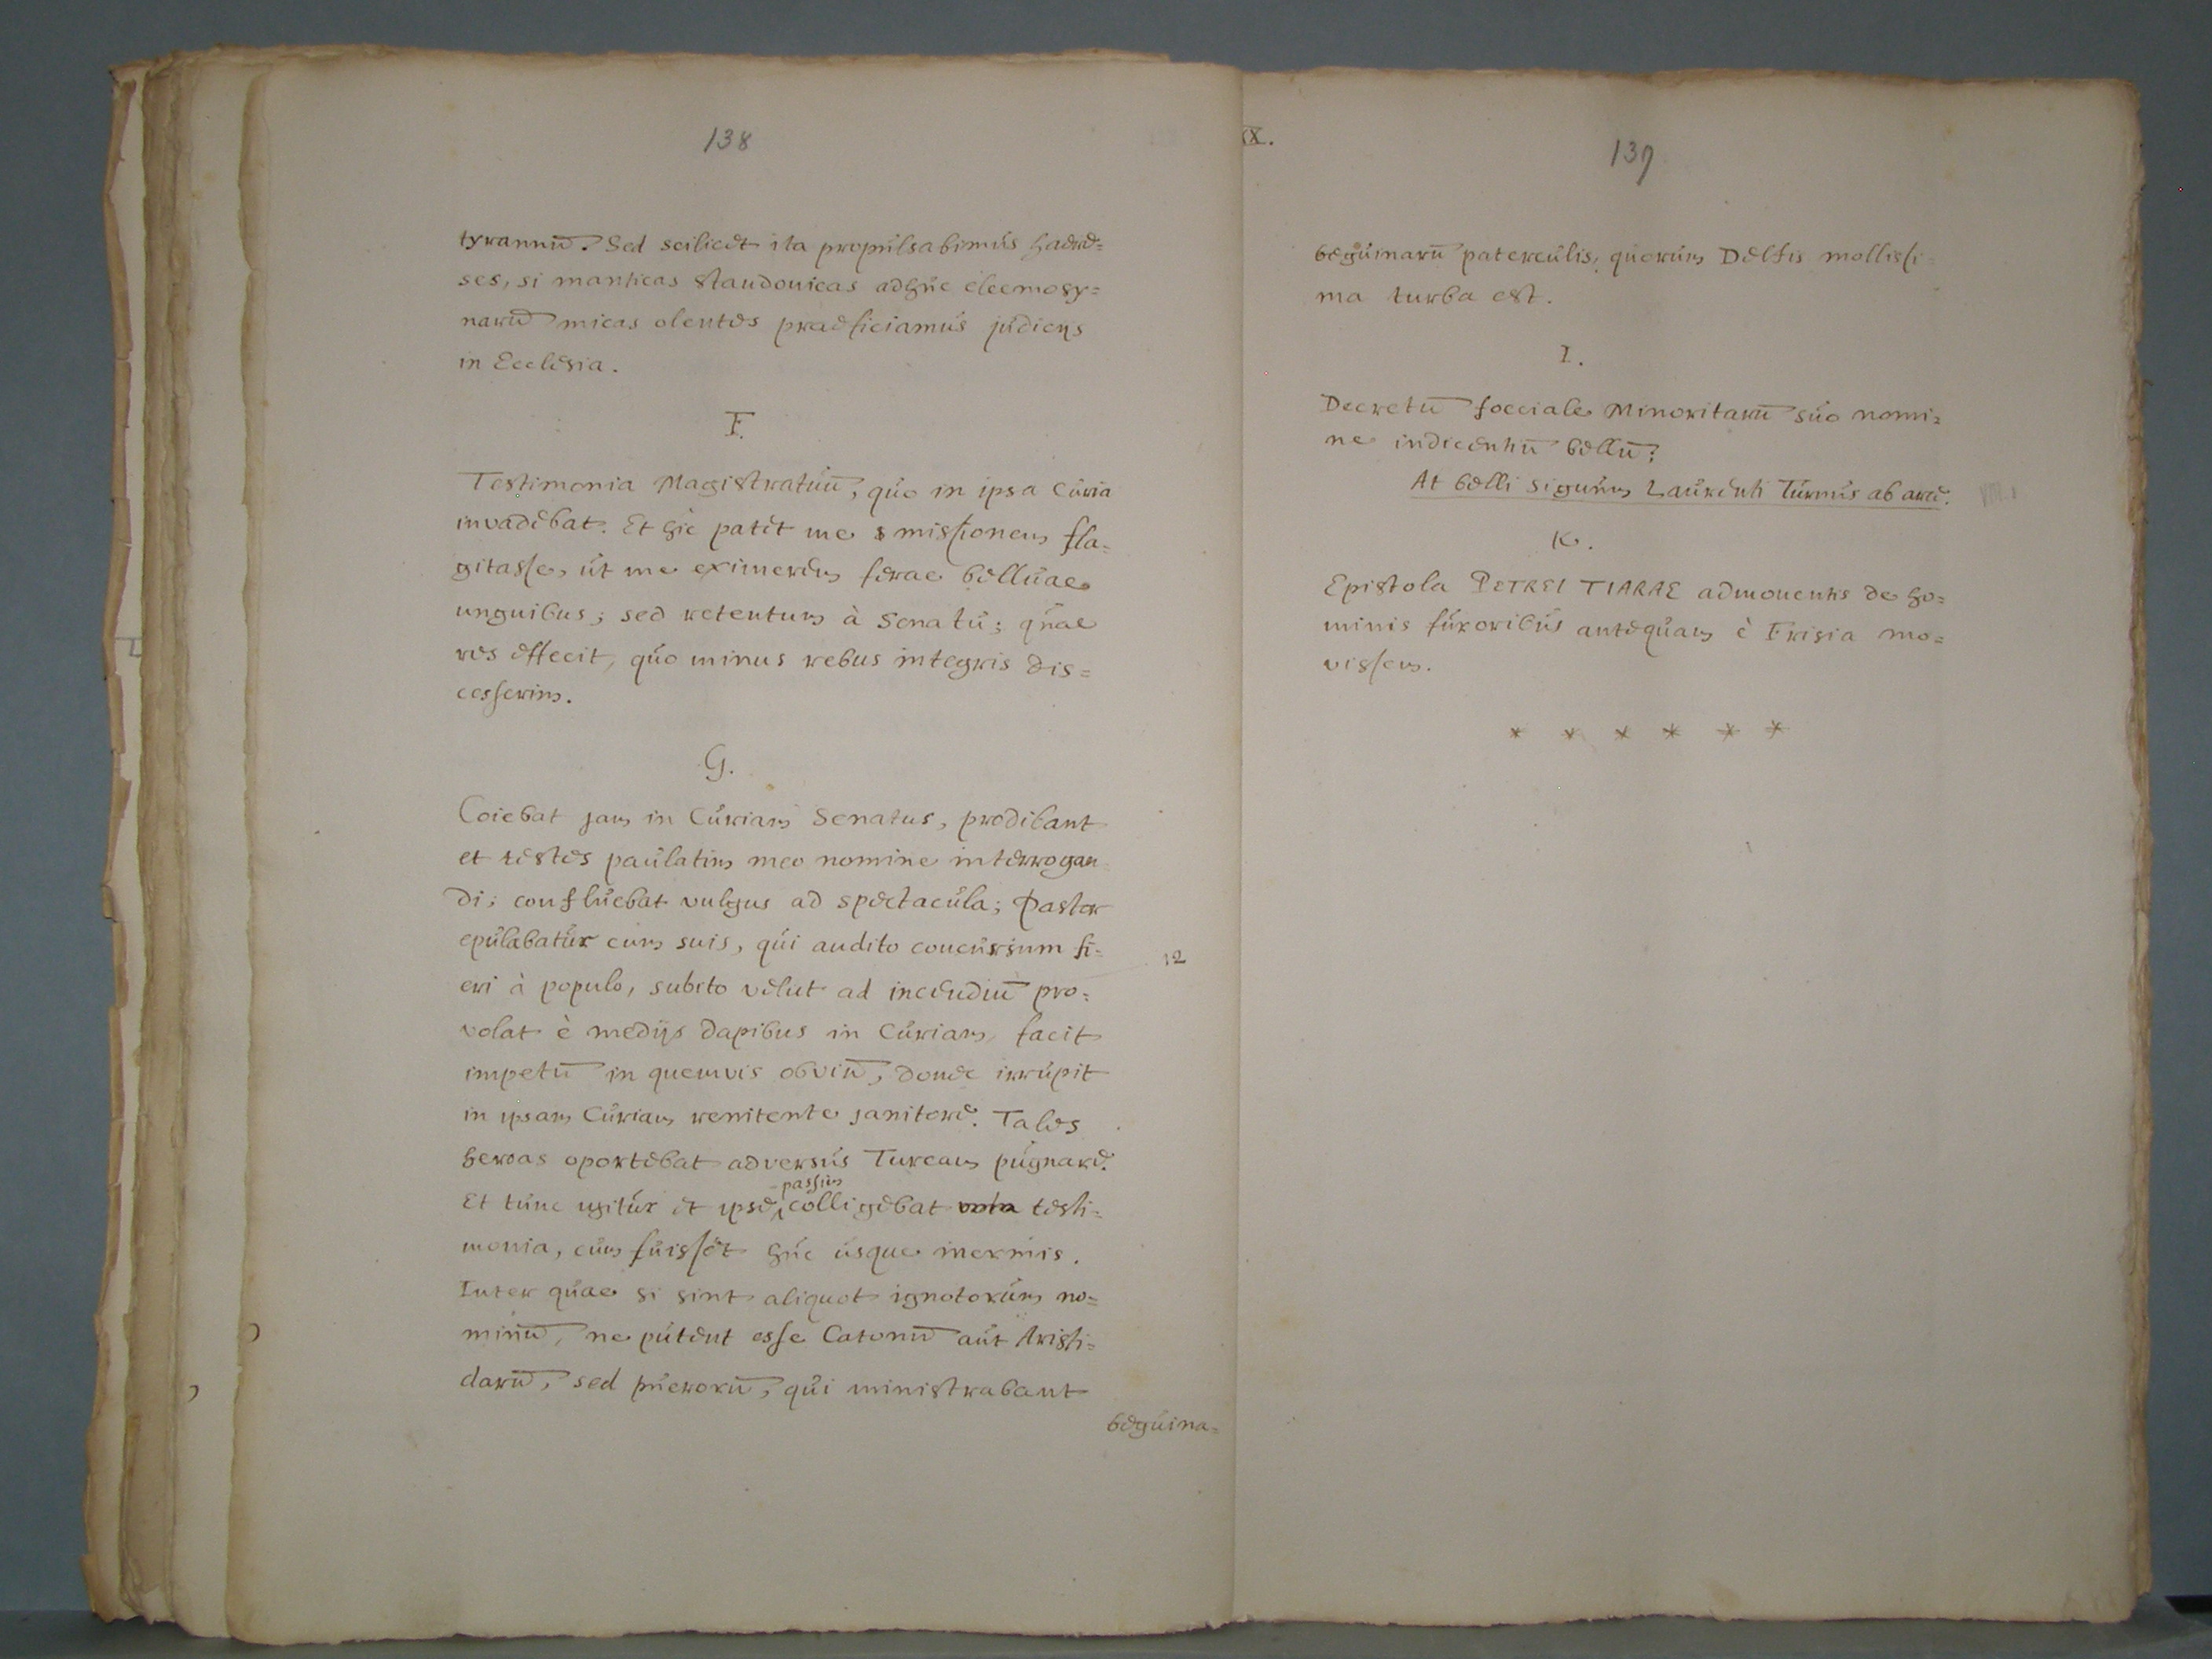 138
tyrannū. Sed scilicet ita propulsabimus haere=
ses, si manticas Standonicas adhuc eleemosy=
narū micas olentes praeficiamus judicijs
in Ecclesia.
F.
Testimonia Magistratuū, quo in ipsa Curia
invadebat. Et hic patet me missionem fla=
gitasse, ut me eximerem ferae belluae
unguibus; sed retentum à Senatu; quae
res effecit, quo minus rebus integris dis=
cesserim.
G.
Coiebat jam in Curiam Senatus, prodibant
et testes paulatim meo nomine interrogan
di; confluebat vulgus ad spectacula; Pastor
epulabatur cum suis, qui audito concursum fi=
eri à populo, subito velut ad incendiū pro=
volat è medijs dapibus in Curiam, facit
impetū in quemvis obviū, donec irrupit
in ipsam Curiam renitente janitore. Tales
heroas oportebat adversus Turcam pugnare.
passim
Et tunc igitur et ipse colligebat testi=
monia, cum fuisset huc usque inermis.
Inter quae si sint aliquot ignotorum no=
minū, ne putent esse Catonū aut Aristi=
darū, sed puerorū, qui ministrabant
beguina=
12
XX.
139
beguinarū paterculis, quorum Delfis mollissi=
ma turba est.
I.
Decretū foeciale Minoritarū suo nomi=
ne indicentiū bellū?
At belli signum Laurenti Turnus ab arce.
VIII.1
K.
Epistola PETREI TIARAE admonentis de ho=
minis furoribus antequam è Frisia mo=
vissem.
* * * * * *